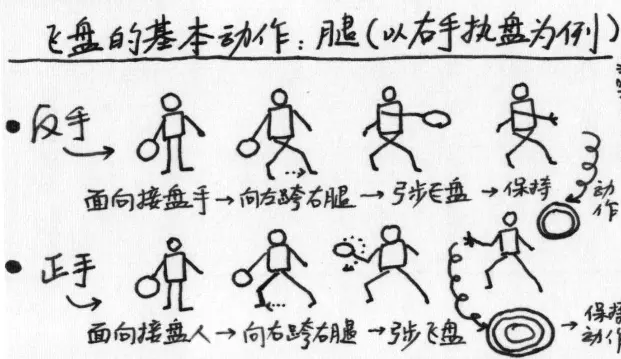 飞盘的基本动作：腿（以右手执盘为例）
反手
面向接盘手→向左跨右腿→弓步飞盘→保持动作
正手
面向接盘人→向右跨右腿→弓步飞盘→保持动作